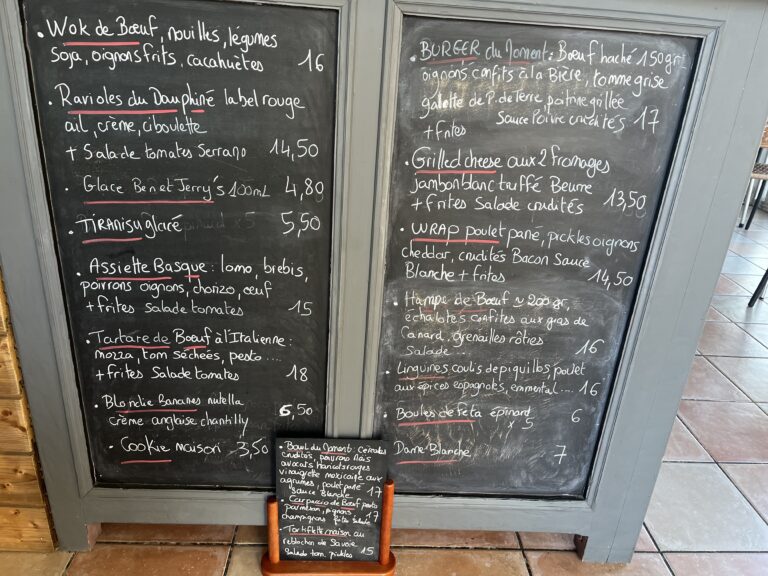 • Wok de Bœuf, nouilles, légumes
Soja, oignons frits, cacahuètes 16
• Ravioles du Dauphiné label rouge
ail, crème, ciboulette
+ Salade tomates Serrano 14,50
• Glace Ben et Jerry's 100mL 4,80
• TIRAMISU glacé 5,50
• Assiette Basque : lomo, brebis,
poivrons oignons, chorizo, œuf
+ frites Salade tomates 15
• Tartare de Bœuf à l'Italienne :
mozza, tom séchées, pesto ....
+ frites Salade tomates 18
• Blondie Bananes nutella
crème anglaise chantilly 6,50
• Cookie maison 3,50
• BURGER du Moment : Bœuf haché 150gr
oignons confits à la Bière, tomme grise
galette de P. de Terre, poitrine grillée
Sauce Poivre crudités 17
+ frites
• Grilled cheese aux 2 fromages
jambon blanc truffé Beurre
+ frites Salade crudités 13,50
• WRAP poulet pané, pickles oignons
cheddar, crudités Bacon Sauce
Blanche + frites 14,50
• Hampe de Bœuf ~ 200 gr,
échalotes confites aux gras de
Canard, grenailles rôties
Salade.. 16
• Linguines coulis de piquillos, poulet
aux épices espagnoles, emmental .... 16
• Boules de feta épinard
x 5 6
Dame Blanche 7
• Bowl du Moment : céréales
crudités, poivrons, Maïs
avocats haricots rouges
vinaigrette mexicaine aux
agrumes, poulet pané
Sauce Blanche 17
• Carpaccio de Bœuf pesto
parmesan, pignons
champignons frites salade 17
• Tartiflette maison au
reblochon de Savoie
Salade tom, pickles 15